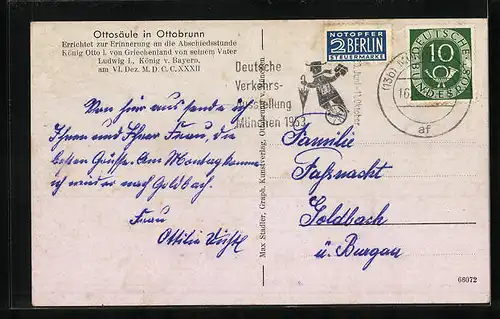 Ottosäule in Ottobrunn
Errichtet zur Erinnerung an die Abschiedsstunde
König Otto I. von Griechenland von seinem Vater
Ludwig I., König v. Bayern,
am VI. Dez. M. D. C. C. XXXII
NOTOPFER
2 BERLIN
STEUERMARKE
DEUTSCHE
BUNDESPOST
10
Deutsche
Verkehrs-
Ausstellung
München 1953
(13b)
16.
af
Von hier aus sende ich
Ihnen und Ihrer Frau, die
besten Grüße. Am Montag komme
ich wieder nach Goldbach.
Frau
Ottilie
Max Stadler, Graph. Kunstverlag, Ottobrunn v. München
Familie
Faßnacht
Goldbach
ü. Burgau
66072